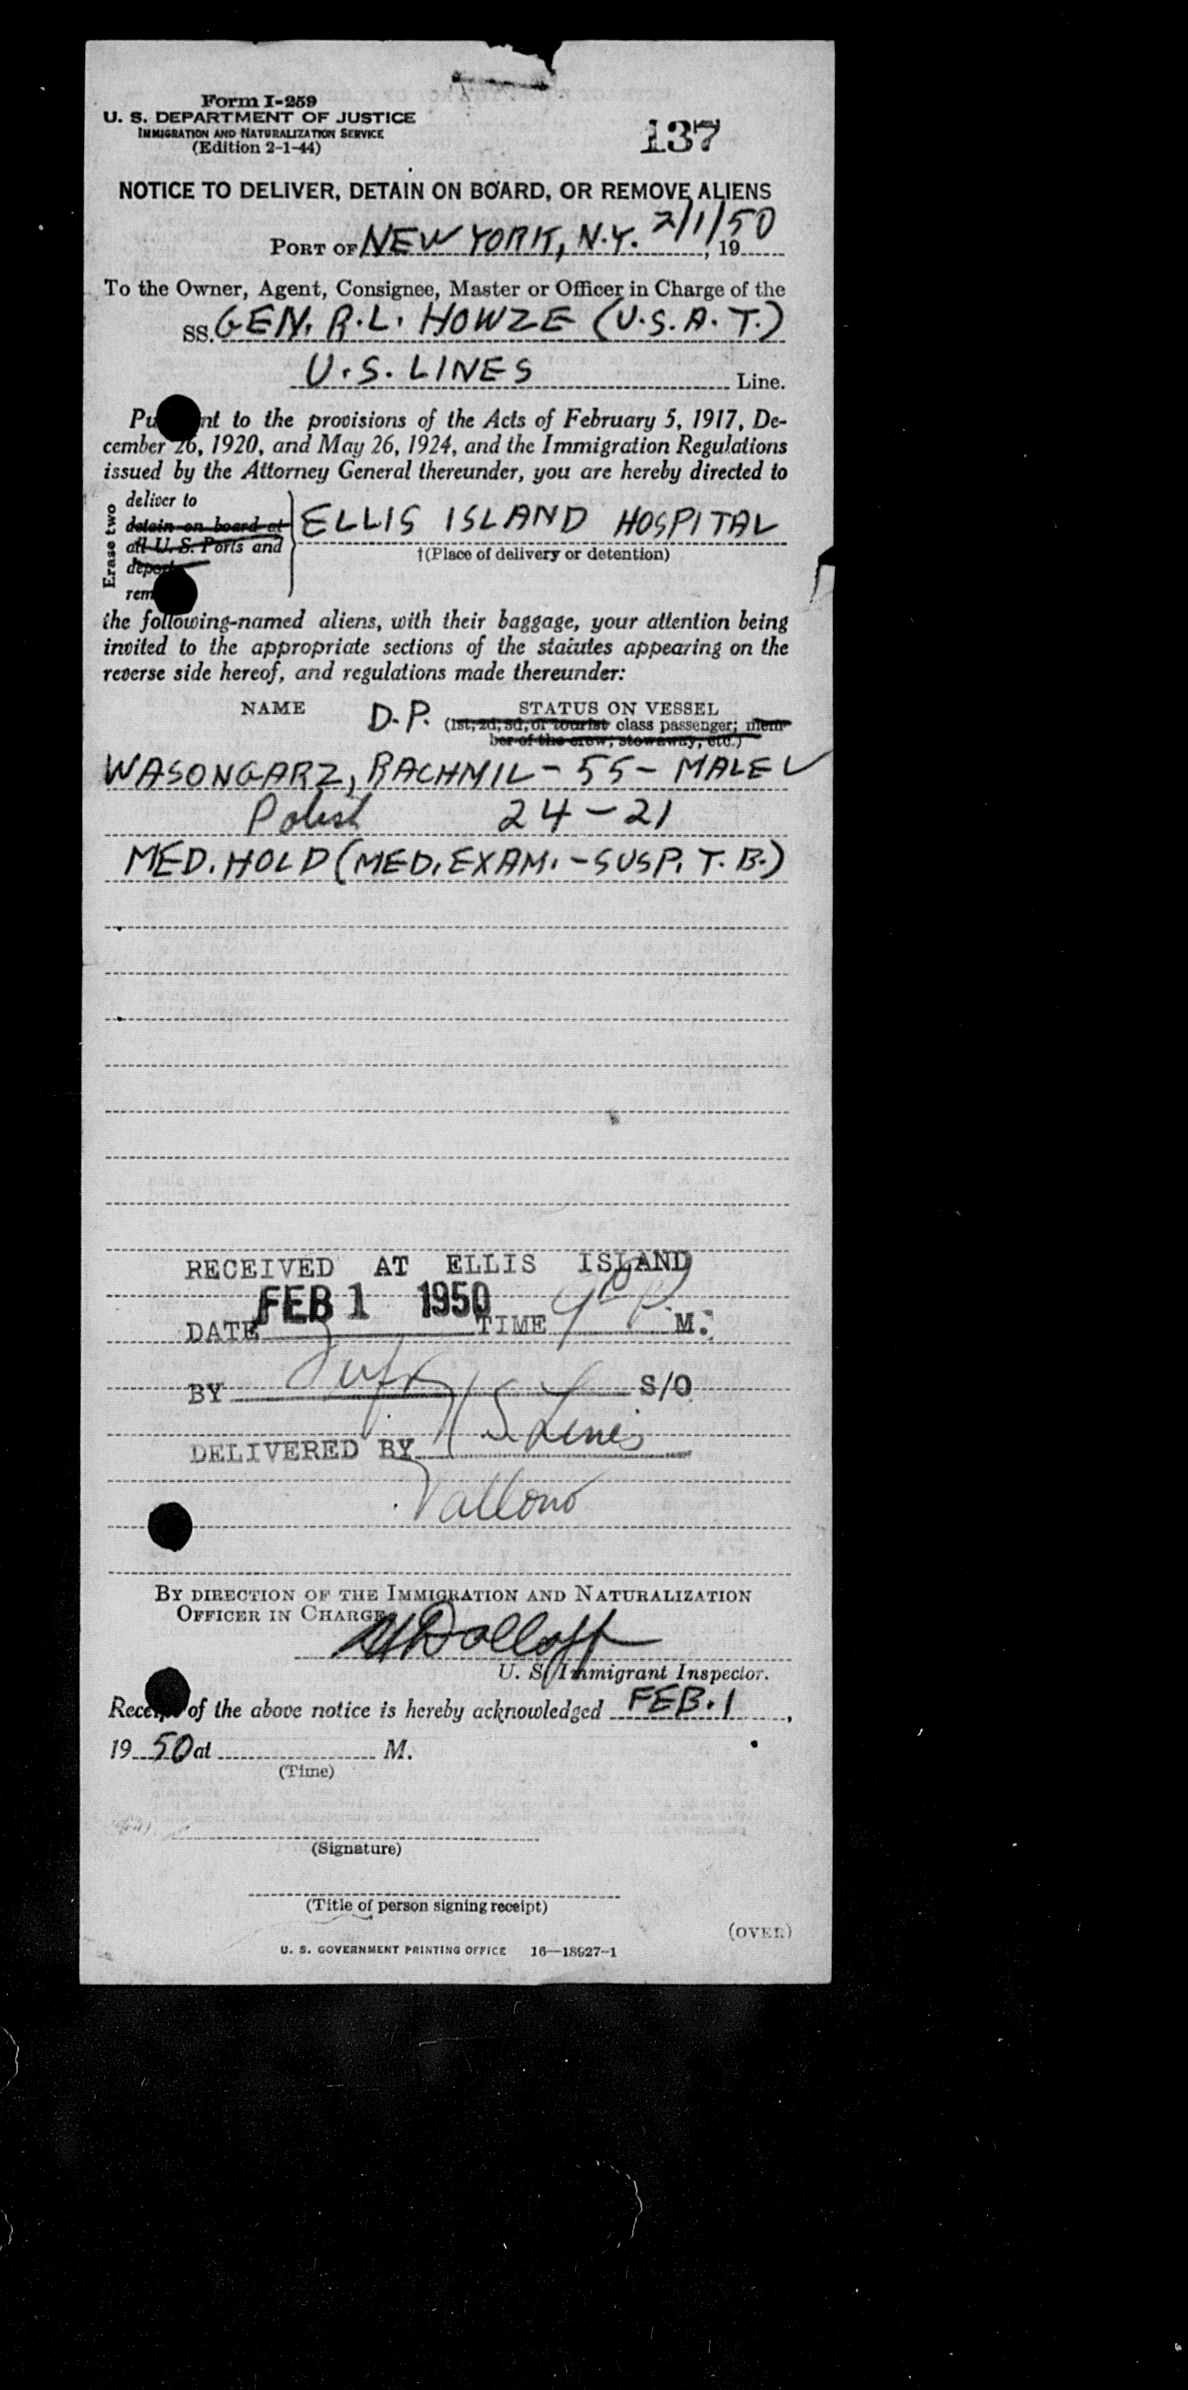 Form I-259
U. S. DEPARTMENT OF JUSTICE
IMMIGRATION AND NATURALIZATION SERVICE
(Edition 2-1-44)
137
NOTICE TO DELIVER, DETAIN ON BOARD, OR REMOVE ALIENS
PORT OF NEW YORK, N.Y. 2/1/50, 19
To the Owner, Agent, Consignee, Master or Officer in Charge of the
SS. GEN. R.L. HOWZE (U.S.A.T.)
U.S. LINES Line.
nt to the provisions of the Acts of February 5, 1917, De-
cember 26, 1920, and May 26, 1924, and the Immigration Regulations
issued by the Attorney General thereunder, you are hereby directed to
Erase two
deliver to
detain on board at
all U. S. Ports and
depor
rem
ELLIS ISLAND HOSPITAL
†(Place of delivery or detention)
the following-named aliens, with their baggage, your attention being
invited to the appropriate sections of the statutes appearing on the
reverse side hereof, and regulations made thereunder:
NAME D.P. STATUS ON VESSEL
(1st, 2d, 3d, or tourist class passenger; mem-
ber of the crew, stowaway, etc.)
WASONGARZ, RACHMIL - 55 - MALE
Polish 24-21
MED. HOLD (MED. EXAM. - SUSP. T. B.)
RECEIVED AT ELLIS ISLAND
DATE FEB 1 1950 TIME M.
BY S/O
DELIVERED BY U S Lines
BY DIRECTION OF THE IMMIGRATION AND NATURALIZATION
OFFICER IN CHARGE
Dolloff
U. S. Immigrant Inspector.
Receipt of the above notice is hereby acknowledged FEB. 1,
19 50 at M.
(Time)
(Signature)
(Title of person signing receipt)
(OVER)
U. S. GOVERNMENT PRINTING OFFICE 16—18927-1